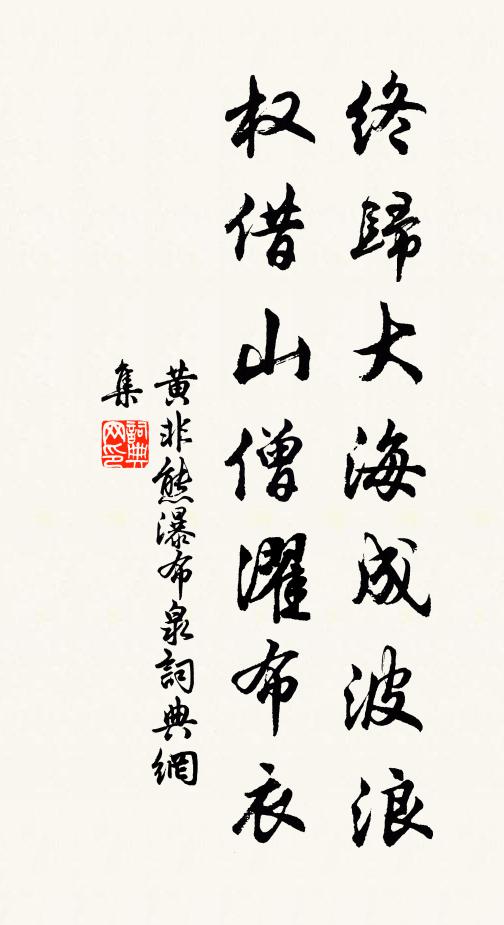 终歸大海成波浪
权借山僧濯布衣
黄非熊瀑布泉詞典網
集
詞典网印